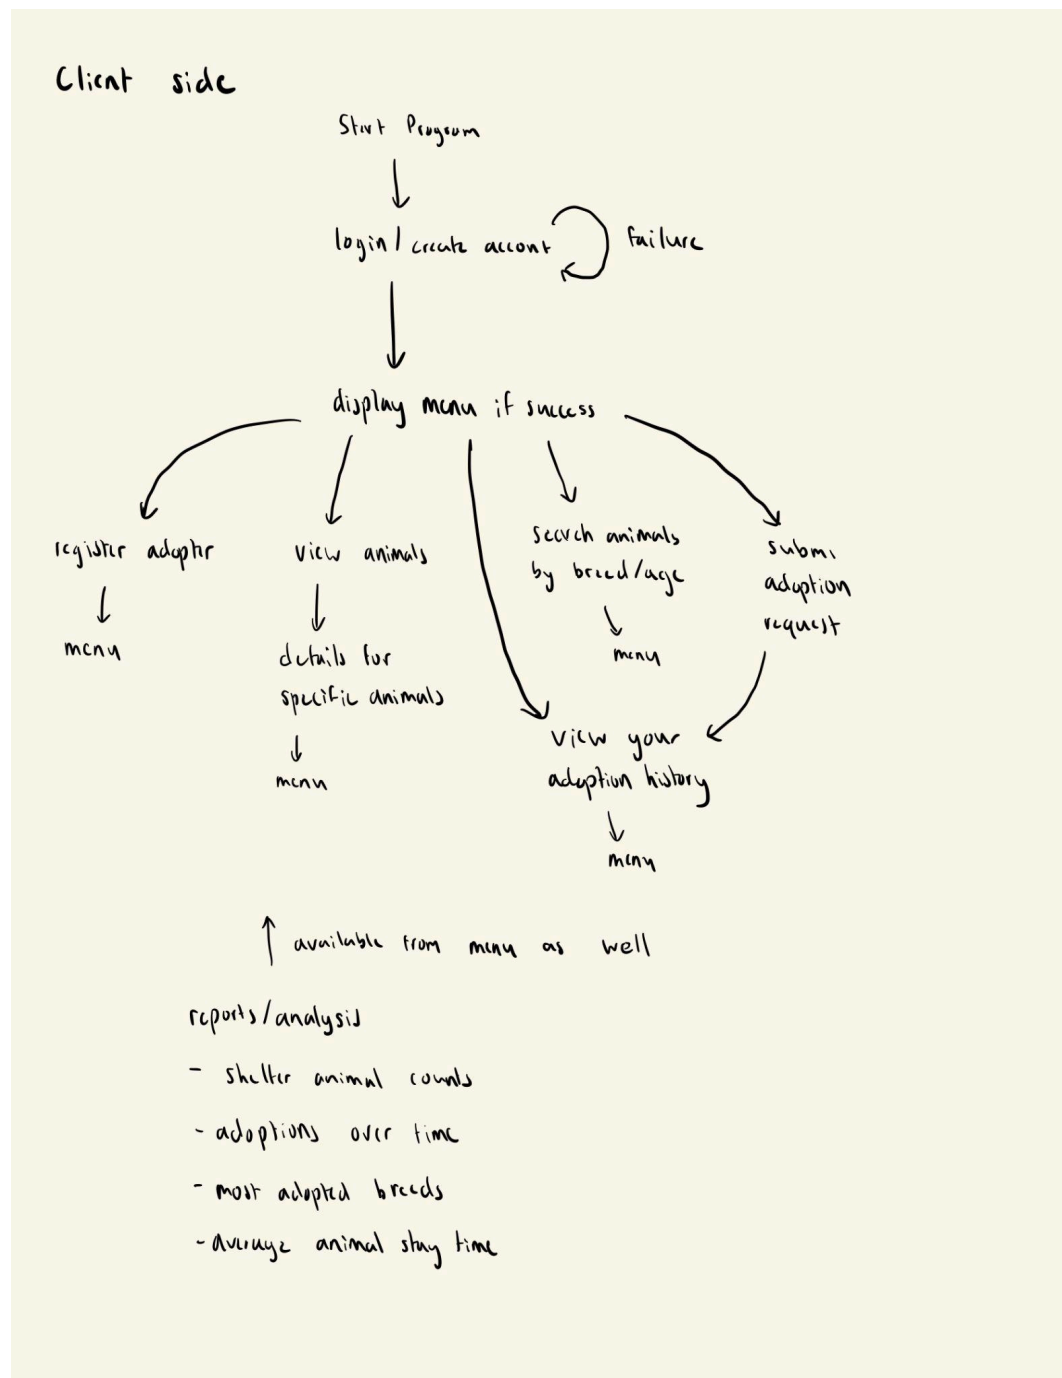 Client side
Start Program
login / create accont
failure
display menu if success
register adopter
menu
view animals
details for
specific animals
menu
search animals
by breed/age
menu
submi
adoption
request
view your
adoption history
menu
available from menu as well
reports/analysis
- shelter animal counts
- adoptions over time
- most adopted breeds
- average animal stay time